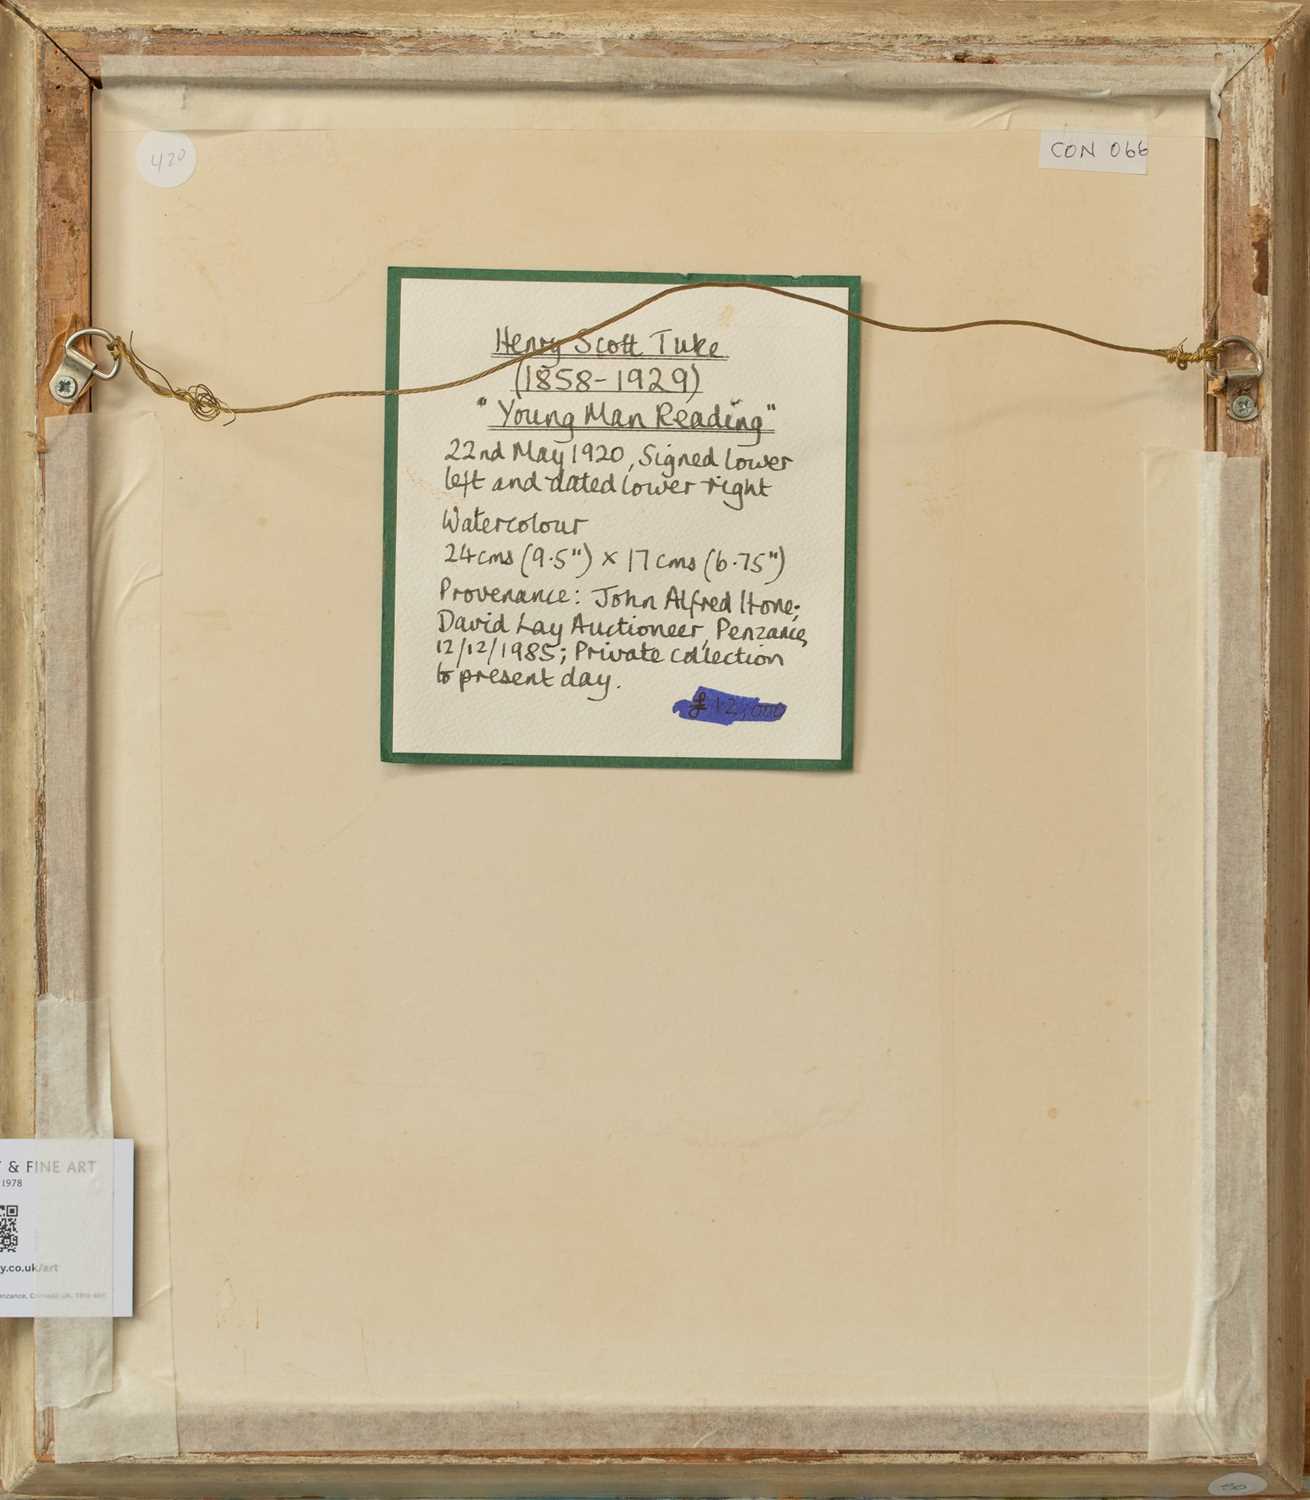 420
CON 066
Henry Scott Tuke
(1858-1929)
"Young Man Reading"
22nd May 1920, Signed lower
left and dated lower right
Watercolour
24cms (9.5") x 17cms (6.75")
Provenance: John Alfred Hone;
David Lay Auctioneer, Penzance,
12/12/1985; Private collection
to present day.
£12,000
& FINE ART
1978
y.co.uk/art